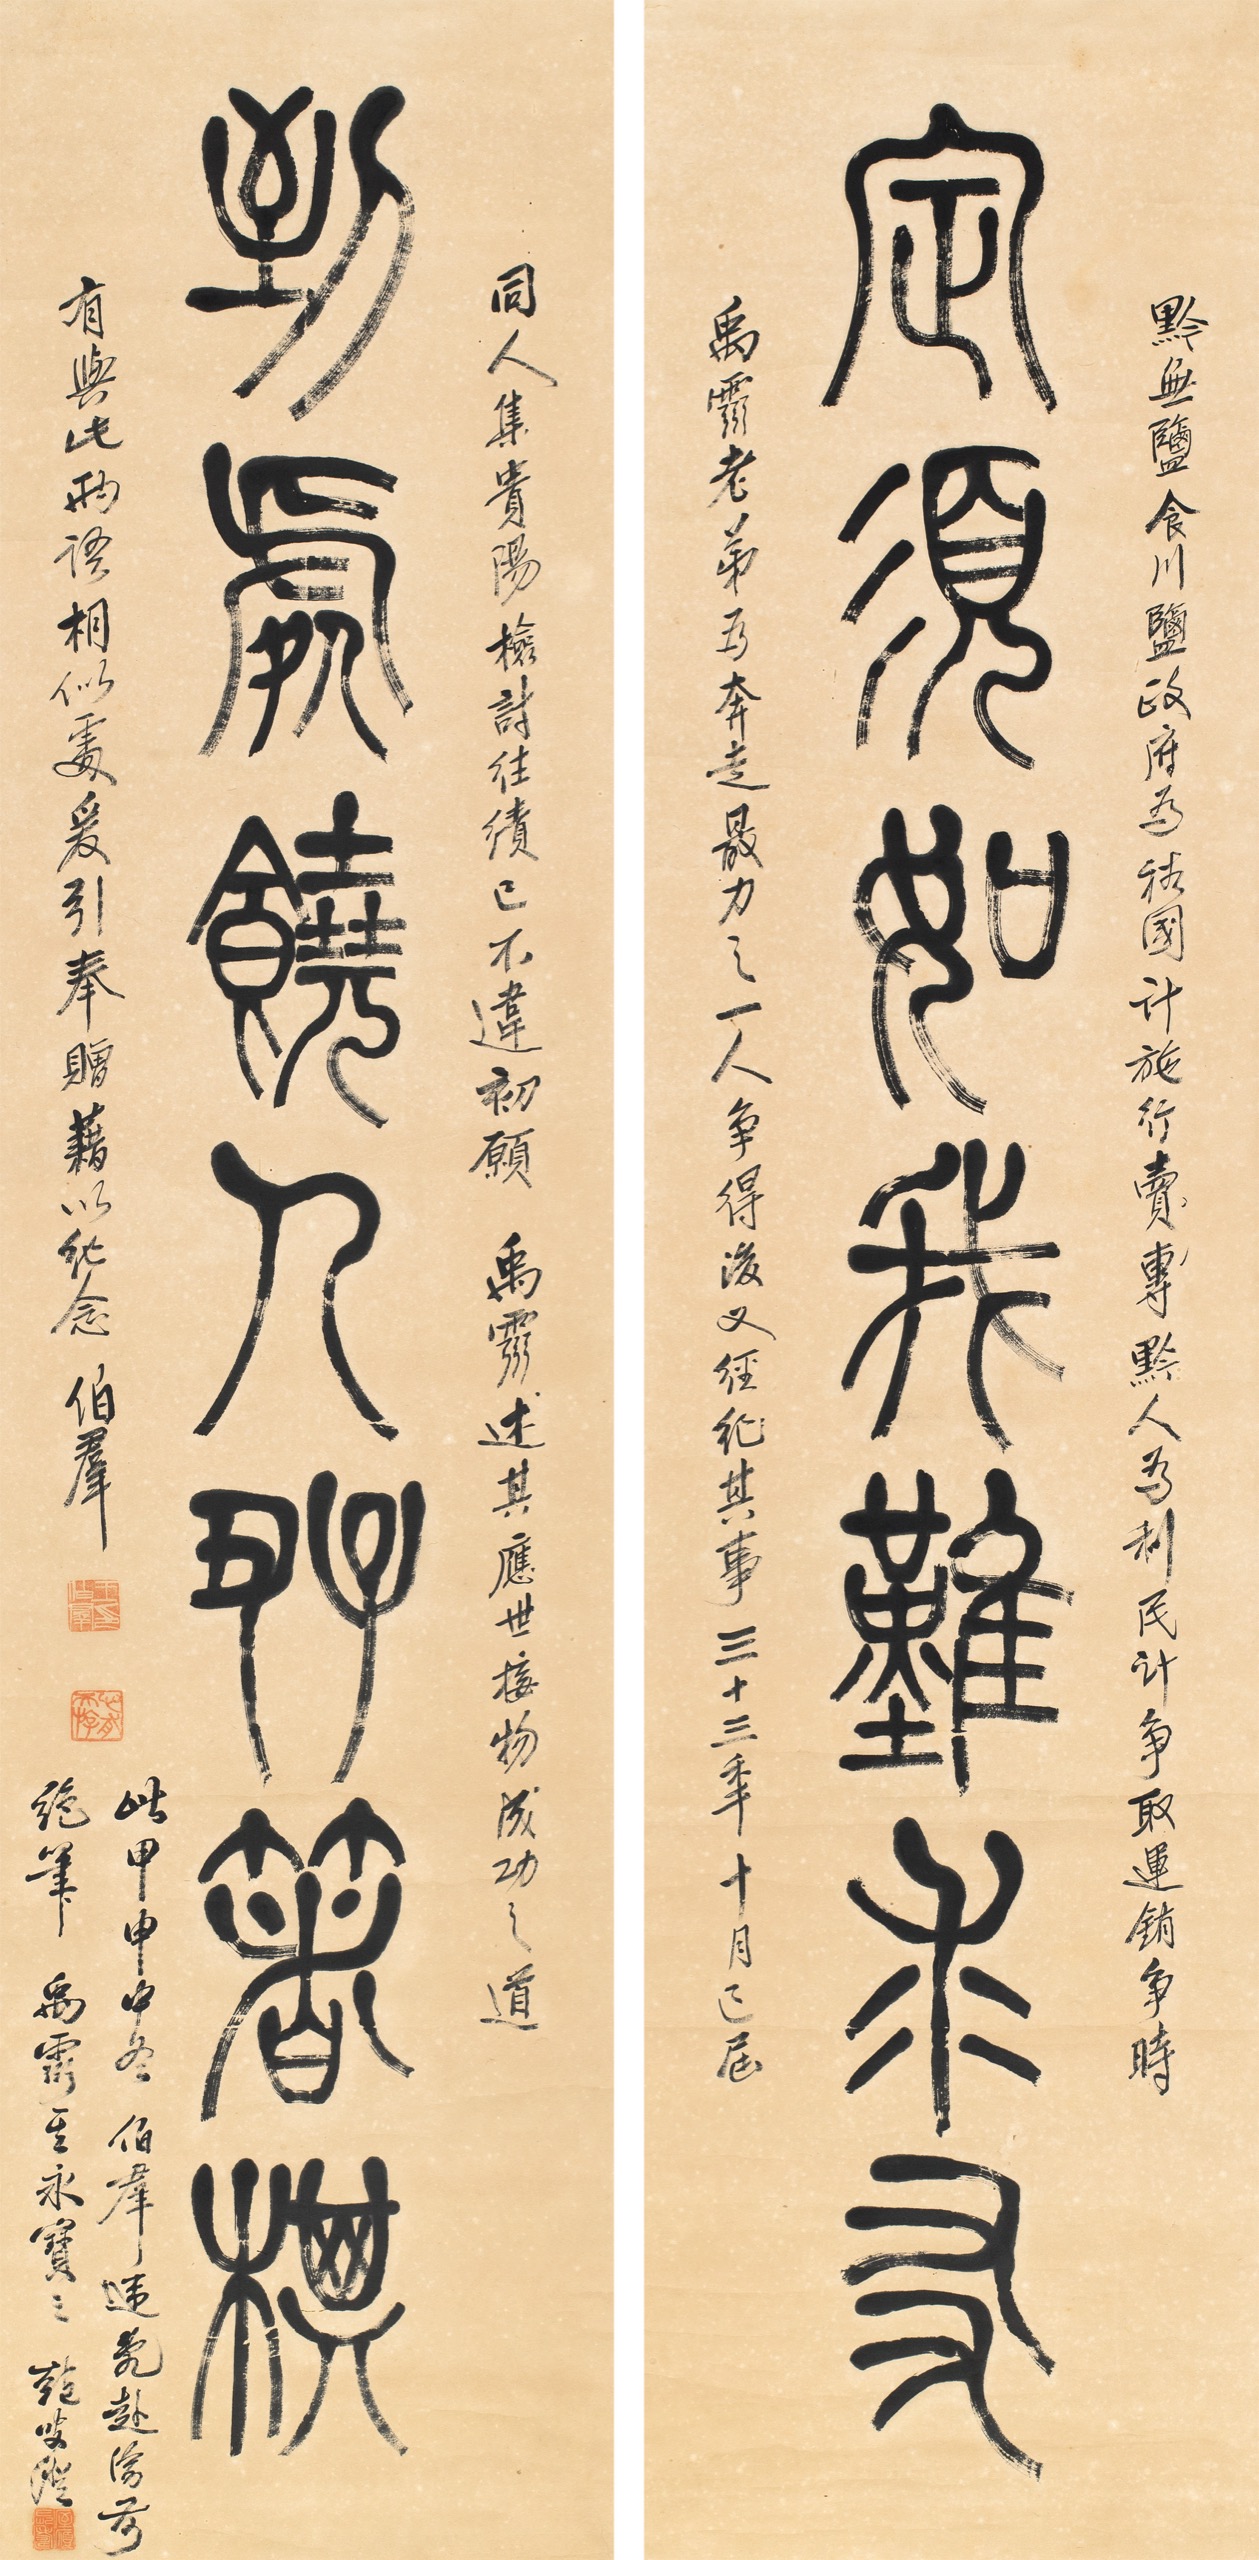 定須如我難求友
黔無鹽食川鹽政府為裕國計施行賣專黔人為利民計爭取運銷爭時
禹老弟為奔走最力之一人爭得後又經紀其事三十三年十月已屆
到處饒人好箸棋
同人集貴陽檢討往績已不違初願 禹述其應世接物成功之道
有與此兩語相似處爰引奉贈藉以紀念 伯羣
此甲申中冬 伯羣違難赴渝前
絕筆 禹其永寶之